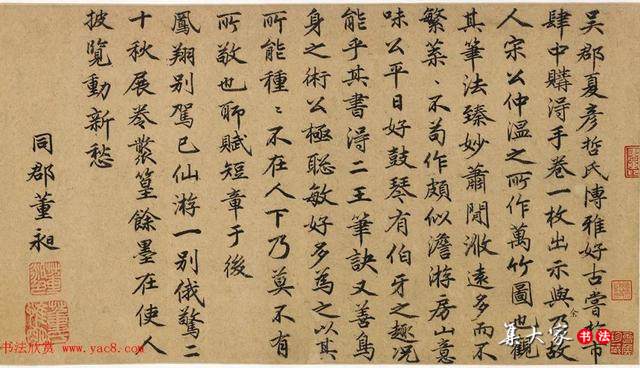 吴郡夏彦哲氏博雅好古嘗於市
肆中購得手卷一枚出示與余乃故
人宋公仲温之所作萬竹圖也觀
其筆法臻妙蕭閒澉遠多而不
繁葉〻不苟作頗似澹游房山意
味公平日好鼓琴有伯牙之趣況
能乎其書得二王筆訣又善鳥
身之術公極聡敏好多為之以其
所能種〻不在人下乃莫不有
所敬也聊賦短章于後
鳳翔别駕已仙游一别俄驚二
十秋展卷叢篁餘墨在使人
披覽動新愁
同郡董昶
集大家书法
书法欣赏 www.yac8.com